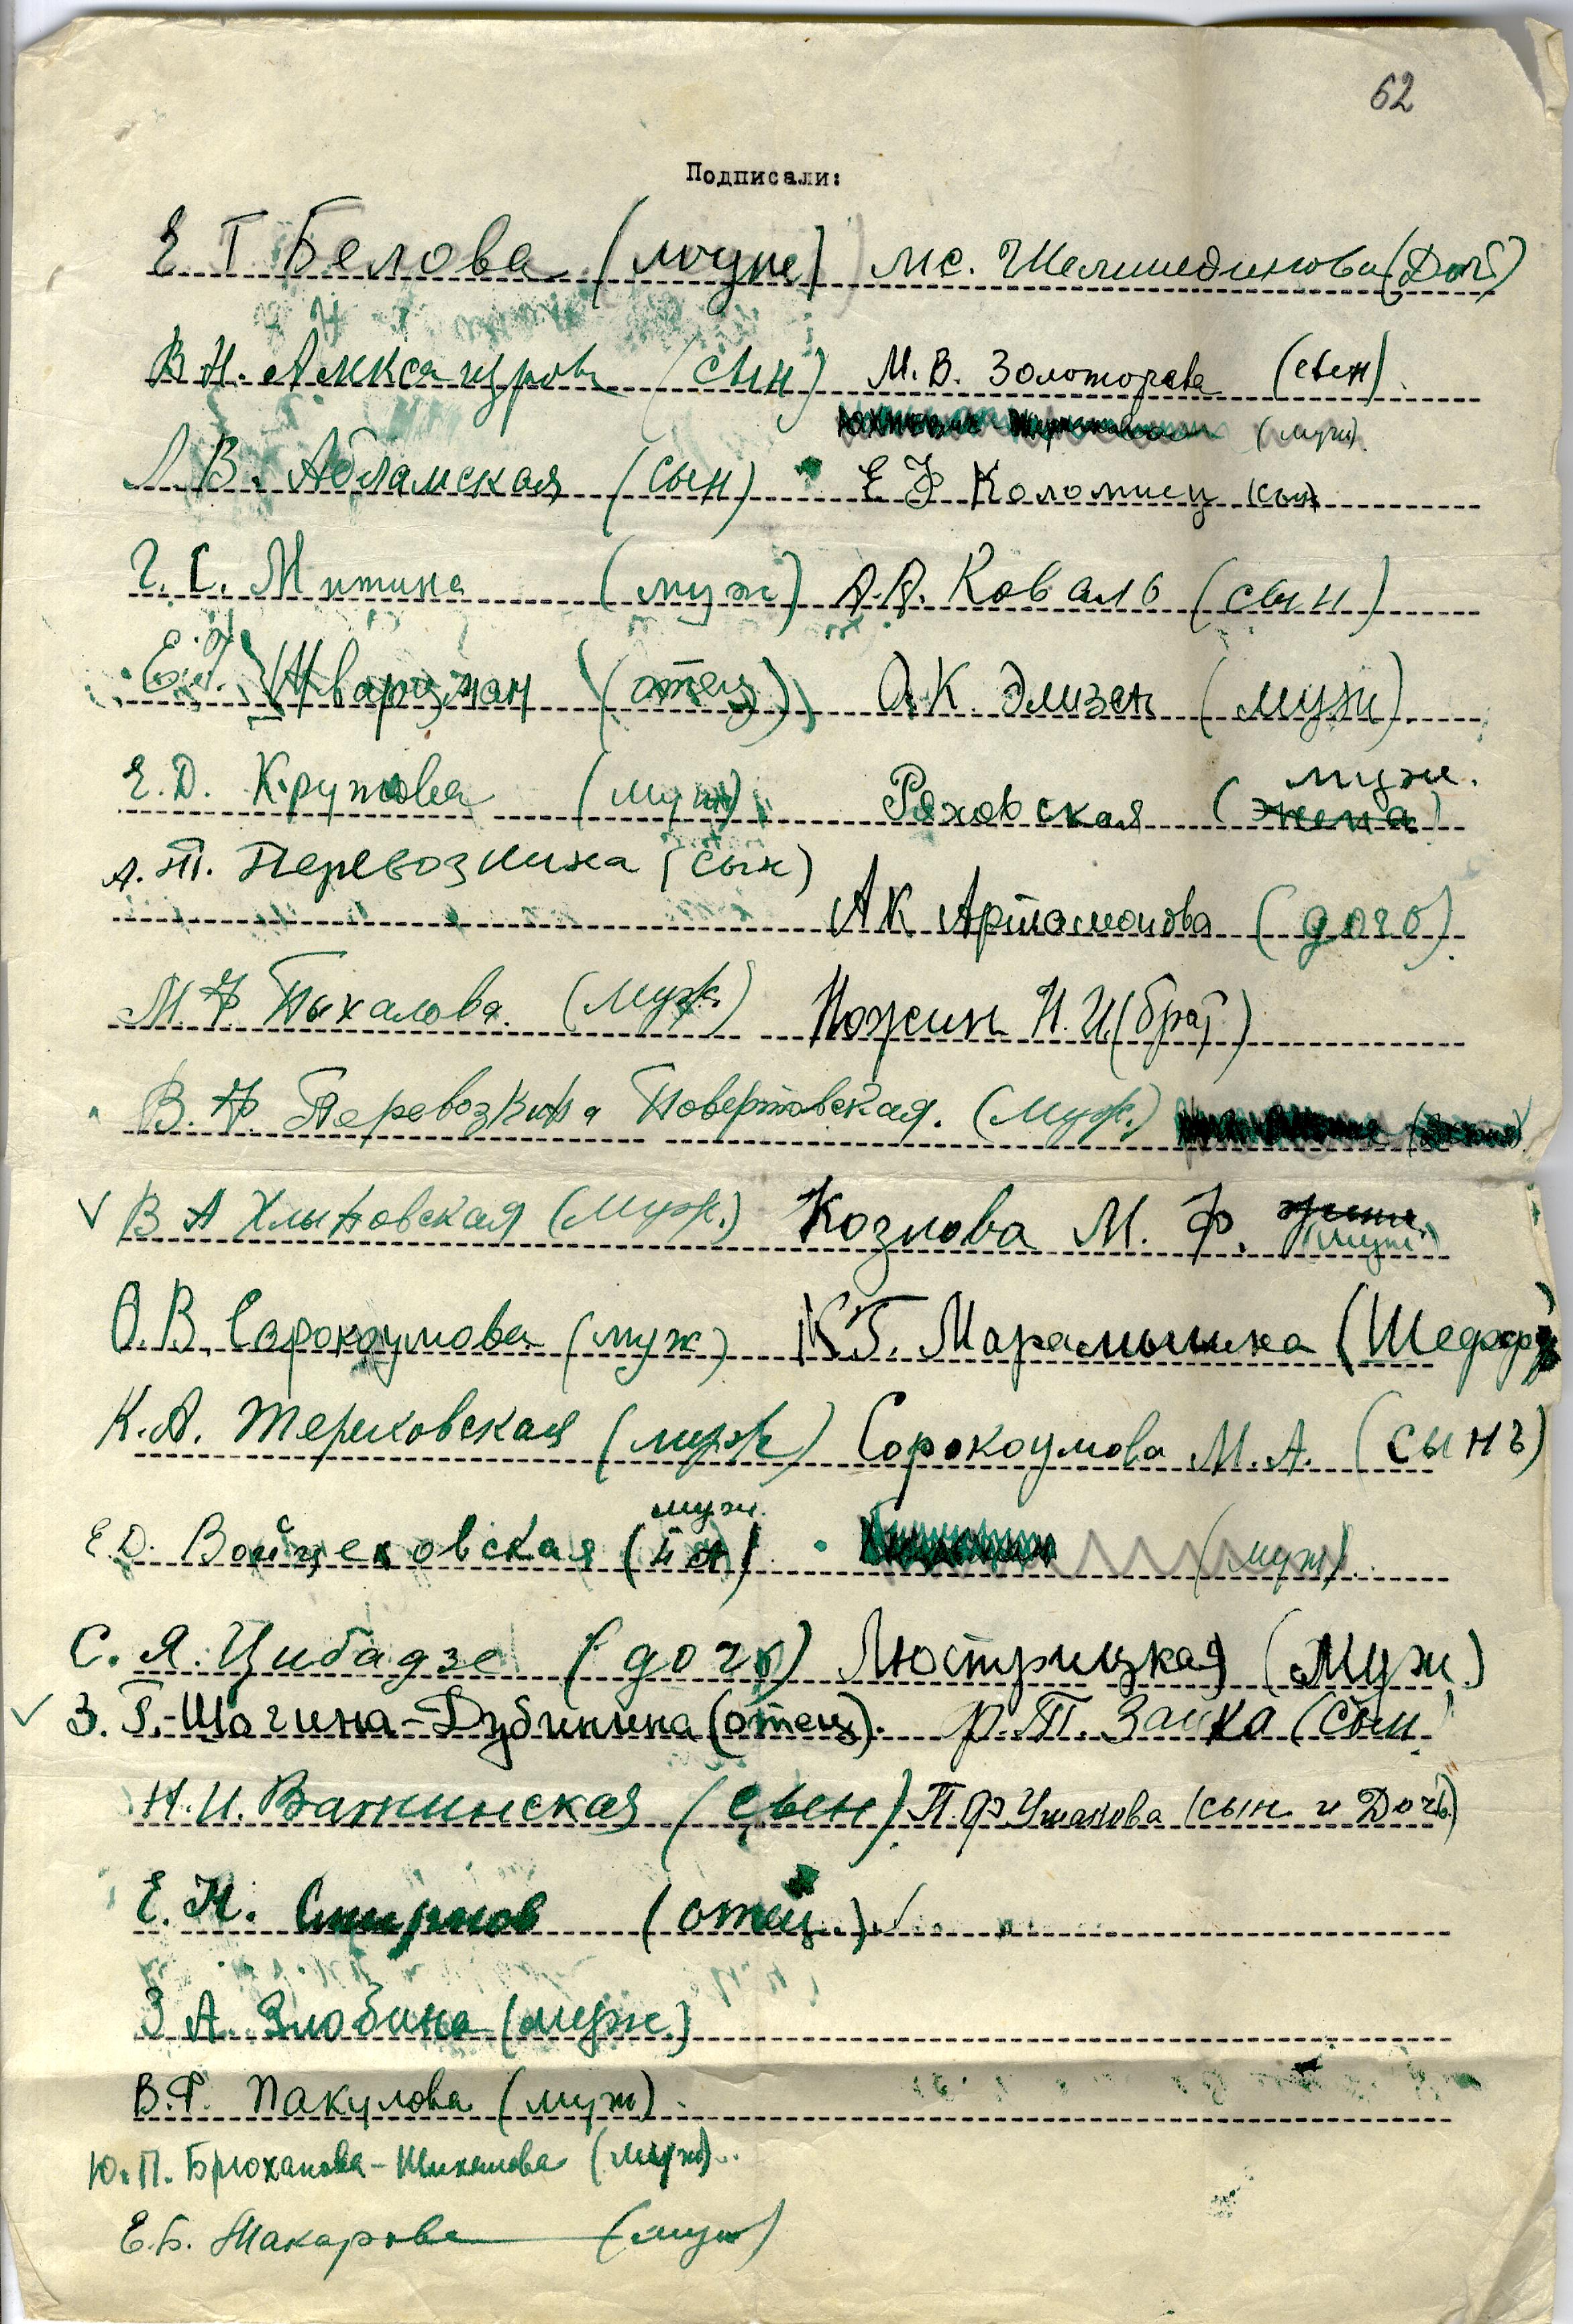 62
Подписали:
Е Г Белова (муж) М.С. Шемшединова (Доч)
В Н. Александрова (сын) М. В. Золоторева (сын)
(муж)
Л. В. Абламская (сын) Е. Ф Коломиец (сын)
Г. С. Митина (муж) А. А. Коваль (сын)
Е. А. Шварцман (отец) О. К. Элизен (муж)
муж.
Е. Д. Крутова (муж) Ряховская (жена)
А. Т. Перевозчика (сын)
А К Артамонова (дочь)
М. Ф. Пыхалова. (Муж.) Ножин Н. И. (брат)
В. Ф. Перевозкина Повертовская. (Муж.)
В А Хлыновская (Муж.) Козлова М. Ф. жена (муж)
О. В. Сорокоумова (муж) К Г. Марамышка (Шеффер)
К. А. Териковская (муж) Сорокоумова М. А. (сынъ)
муж.
Е. D. Войцеховская ( (муж)
С. Я. Цибадзе (дочь) Люстрицкая (Муж.)
З. Г. Шагина-Дубинина (отец). Р. Т. Заика (Сын)
Н. И. Ваткинская (сын) П. Ф Ушакова (сын и Дочь)
Е. Н. Смирнов (отец.)
З А. Злобина (муж.)
В. Г. Пакулова (муж)
Ю. П. Брюханова-Шихалова (муж)
Е. Б. Макарова (муж)